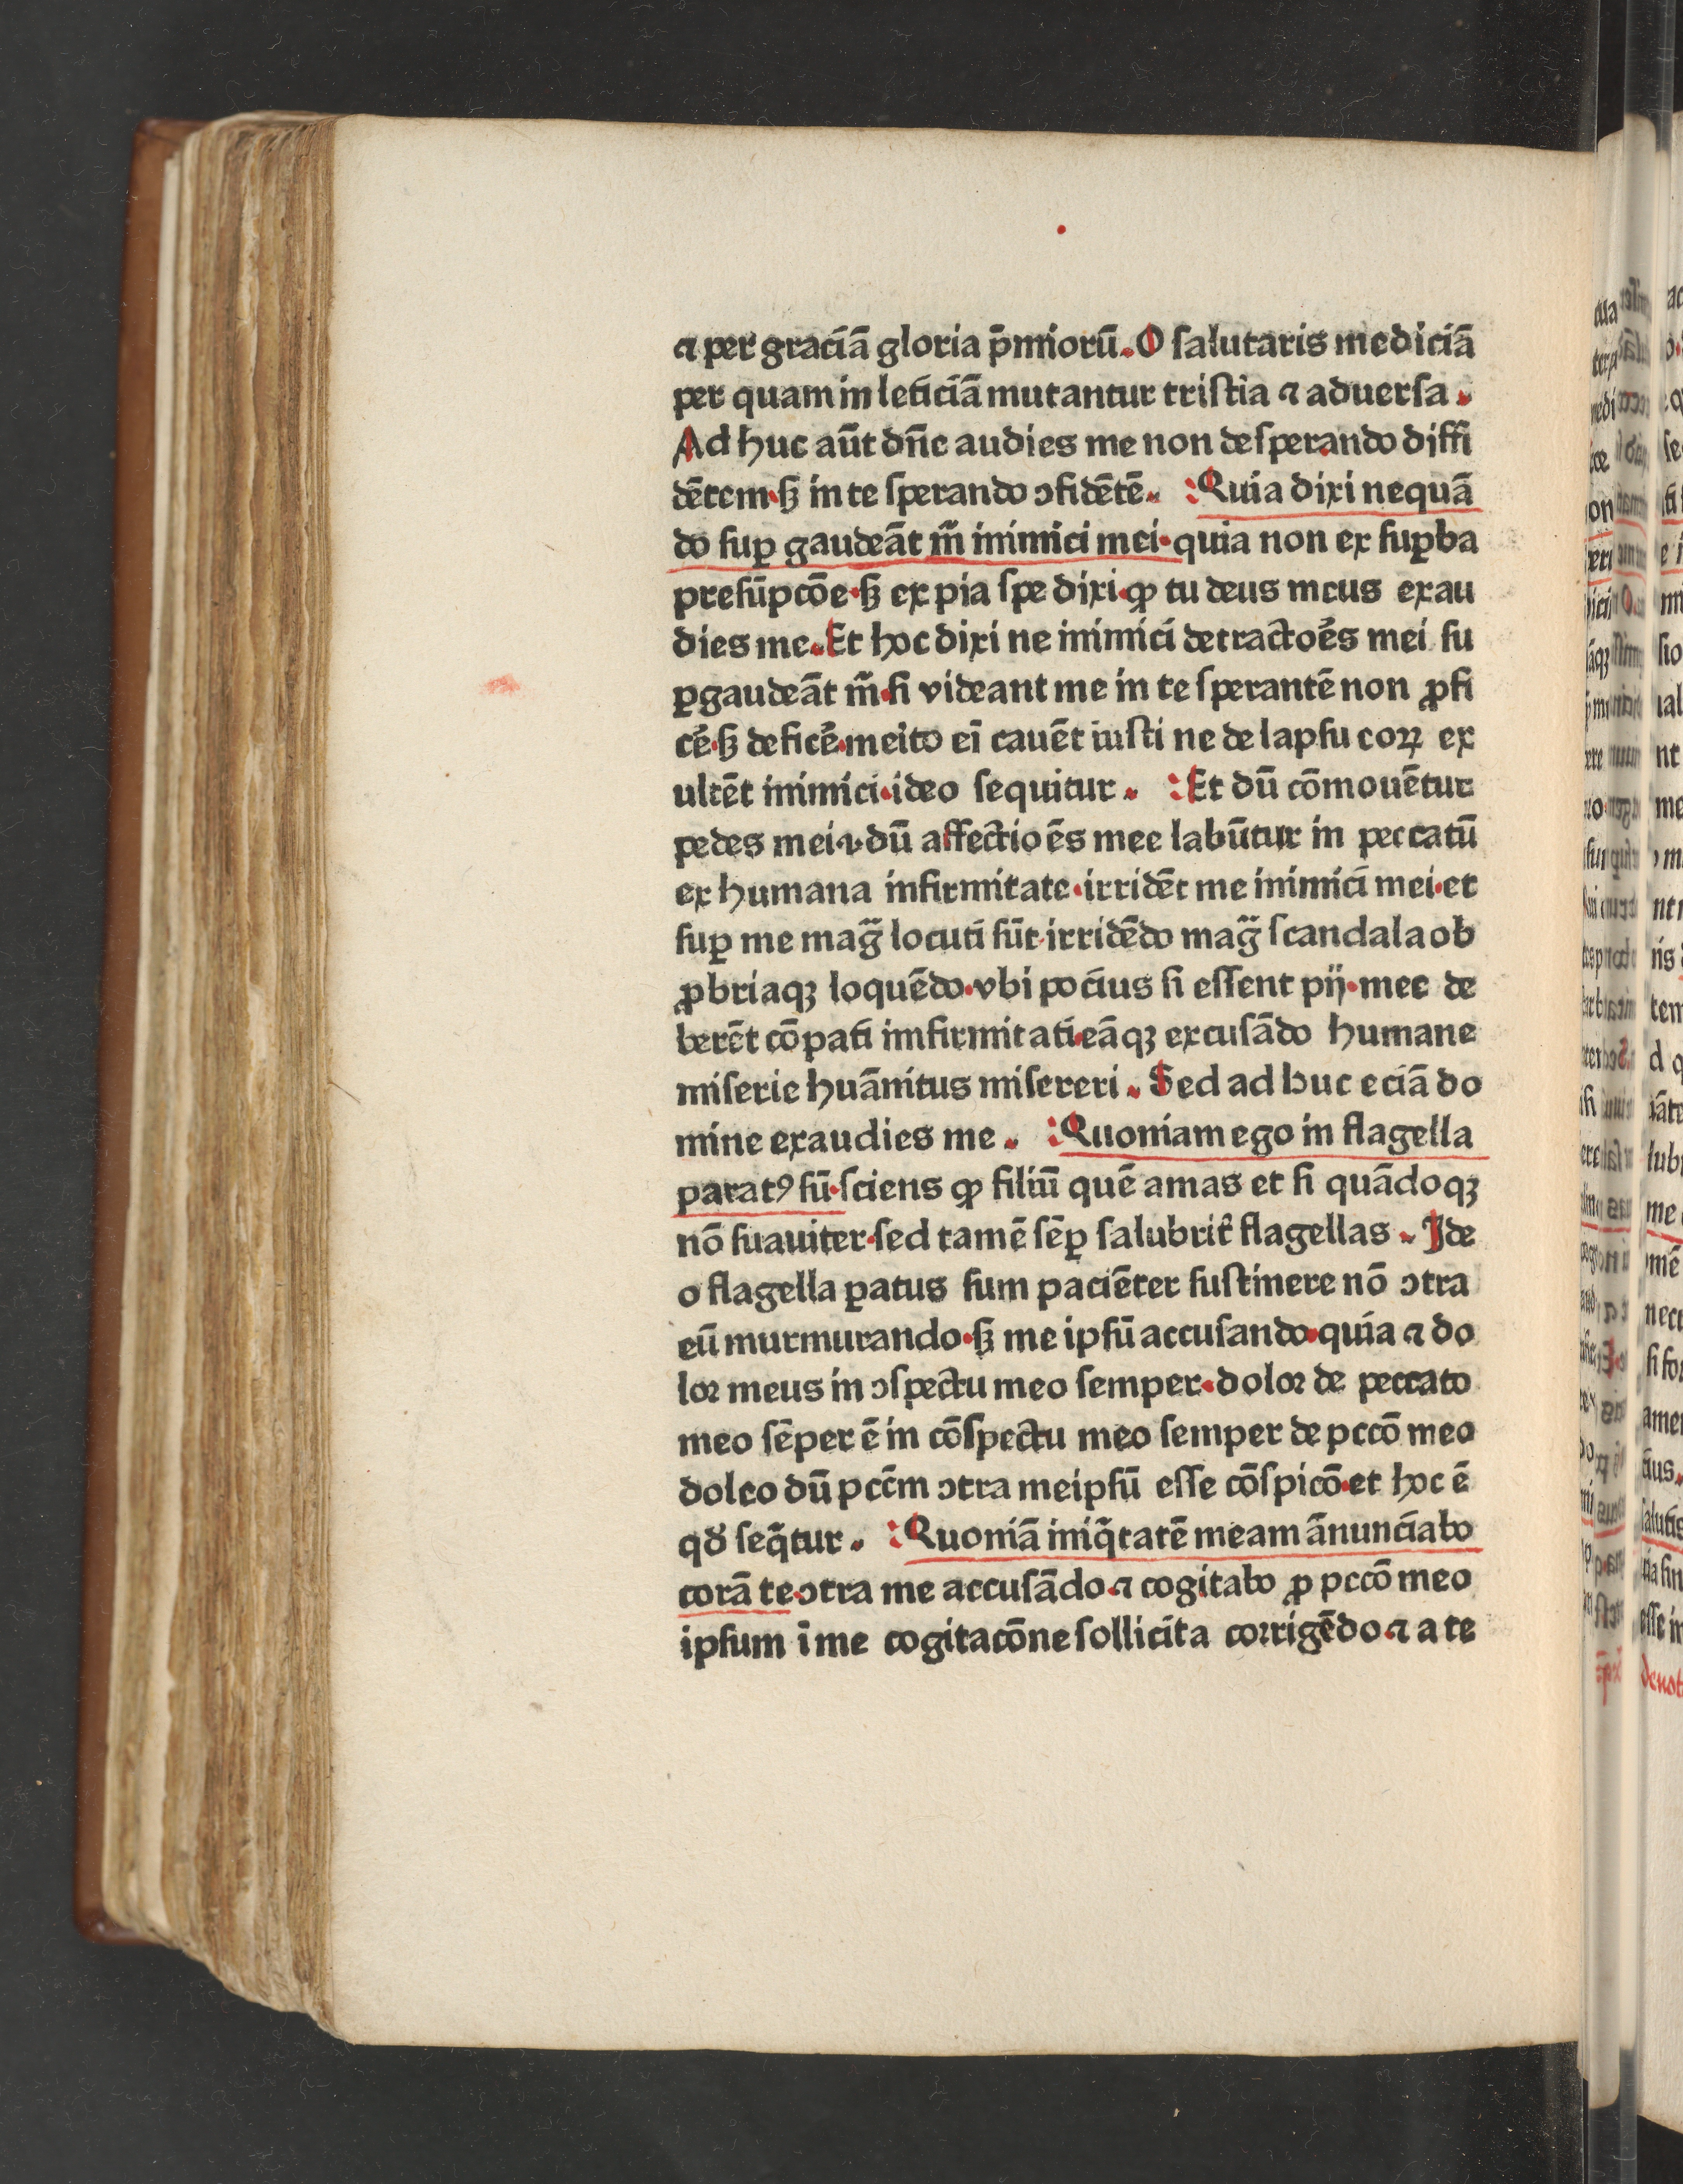 ⁊ per graciã gloria p̄miorũ. O ſalutaris mediciã
per quam in leticiã mutantur triſtia ⁊ aduerſa.
Ad huc aũt dñe audies me non deſperando diffi
dẽtem·ſꝫ in te ſperando ↄfidẽtẽ. :Quia dixi nequã
do ſuꝑ gaudeãt m̃ inimici mei·quia non ex ſuꝑba
preſũpcõe·ſꝫ ex pia ſpe dixi·ꝙ tu deus meus exau
dies me.Et hoc dixi ne inimici detractoẽs mei ſu
ꝑgaudeãt m̃·ſi videant me in te ſperantẽ non ꝓfi
cẽ·ſꝫ deficẽ·meito ei cauẽt iuſti ne de lapſu eoꝝ ex
ultẽt inimici·ideo ſequitur. :Et dũ cõmouẽtur
pedes mei·v·dũ affectioẽs mee labũtur in peccatũ
ex humana infirmitate·irridẽt me inimici mei·et
ſuꝑ me mag̃ locuti ſũt·irridẽdo mag̃ ſcandala ob
ꝓbriaqꝫ loquẽdo·vbi pocius ſi eſſent pij·mee de
berẽt cõpati imfirmitati·eãqꝫ excuſãdo humane
miſerie huãnitus miſereri. Sed ad huc eciã do
mine exaudies me. :Quoniam ego in flagella
paratꝰ ſũ·ſciens ꝙ filiũ quẽ amas et ſi quãdoqꝫ
nõ ſuauiter·ſed tamẽ ſẽꝑ ſalubrit̃ flagellas. Ide
o flagella ꝑatus ſum paciẽter ſuſtinere nõ ↄtra
eũ murmurando·ſꝫ me ipſũ accuſando·quia ⁊ do
lor meus in ↄſpectu meo ſemper·dolor de peccato
meo ſẽper ẽ in cõſpectu meo ſemper de pccõ meo
doleo dũ pcc̃m ↄtra meipſũ eſſe cõſpicõ·et hoc ẽ
qđ ſeq̃tur. :Quoniã iniq̃tatẽ meam ãnunciabo
corã te·ↄtra me accuſãdo·⁊ cogitabo ꝓ pccõ meo
ipſum ĩ me cogitacõne ſollicita corrigẽdo·⁊ a te